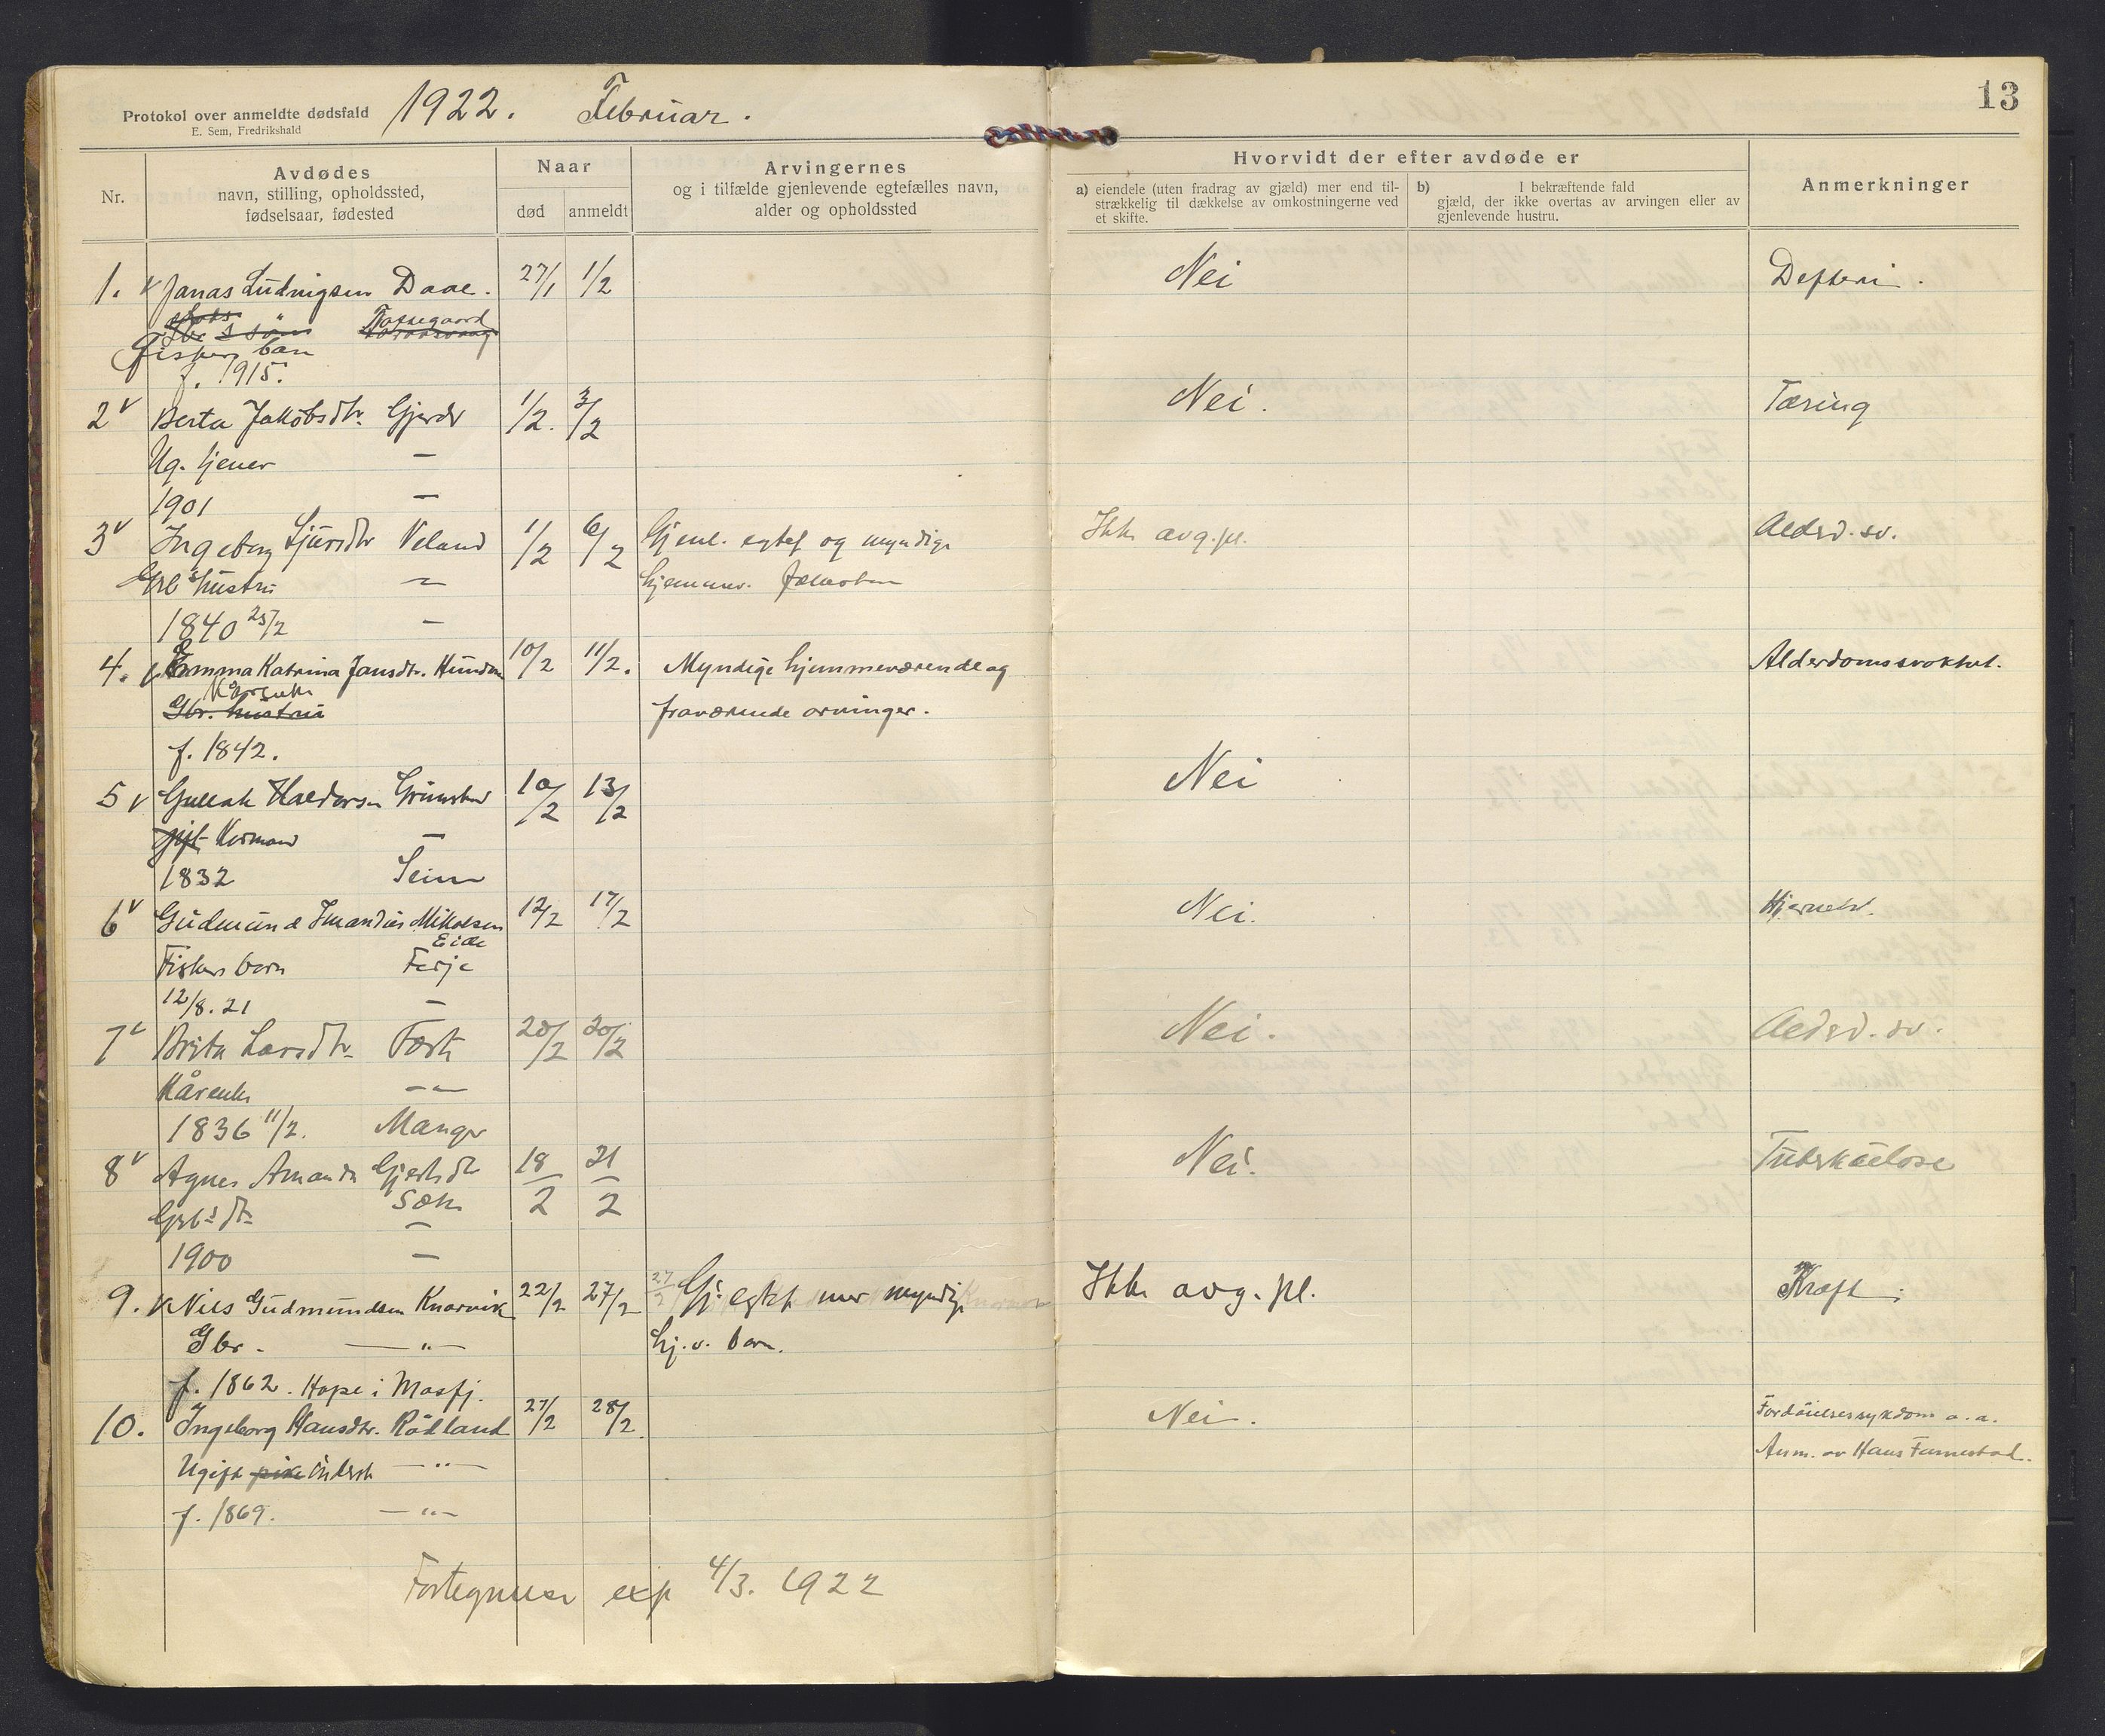 Protokol over anmeldte dødsfald
E. Sem, Fredrikshald
1922. Februar.
13
Nr.
Avdødes
navn, stilling, opholdssted,
fødselsaar, fødested
Naar
død
anmeldt
Arvingernes
og i tilfælde gjenlevende egtefælles navn,
alder og opholdssted
Hvorvidt der efter avdøde er
a) eiendele (uten fradrag av gjæld) mer end til-
strækkelig til dækkelse av omkostningerne ved
et skifte.
b) I bekræftende fald
gjæld, der ikke overtas av arvingen eller av
gjenlevende hustru.
Anmerkninger
1. Janas Ludvigsen Daae. 27/1 1/2 Nei Defteri.
Fiskers barn
f. 1915.
2 Berta Jakobsdtr. Gjerde 1/2. 3/2 Nei. Tæring
Ug. tjener —
1901 —
3 Ingeborg Sjursdtr Veland 1/2 6/2 Gjenl. egtef og myndige Ikke avg.pl. Aldrd. sv.
Grb s hustru — hjemmev.
1840 25/2 —
4. Emma Katrina Jansdtr. 10/2 11/2. Myndige hjemmeværende og Alderdomssvakhet.
Kårenke
Gbr. hustru fraværende arvinger.
f. 1842.
5 Gullak Haldorsen Grimstad 10/2 13/2 Nei
gift Kormand —
1832 Seim
6 Gudmund Mikalsen 12/2 17/2 Nei. Hjernebet.
Eide
Fiskers barn Ferje
12/8. 21 —
7 Brita Larsdtr. 20/2 20/2 Nei. Aldrd. sv.
Kårenke —"—
1836 11/2. Manger
8 Agnes Amanda Gjertsdtr 18/2 21/2 Nei. Tuberkulose
Grb s dtr Sæt
—
1900 —
9. Nils Gudmundsen Knarvik 22/2 27/2 27/2 Gj. egtef med myndige Ikke avg. pl. Kræft.
Gbr. —"— hj. v. barn.
f. 1862. Hope i Masfj.
10. Ingeborg Hansdtr. Rödland 27/2 28/2. Nei. Fordöielsessykdom o. a.
Ugift pike inderst —"— Anm. av Hans
f. 1869. —"—
Fortegnelse exp 4/3. 1922